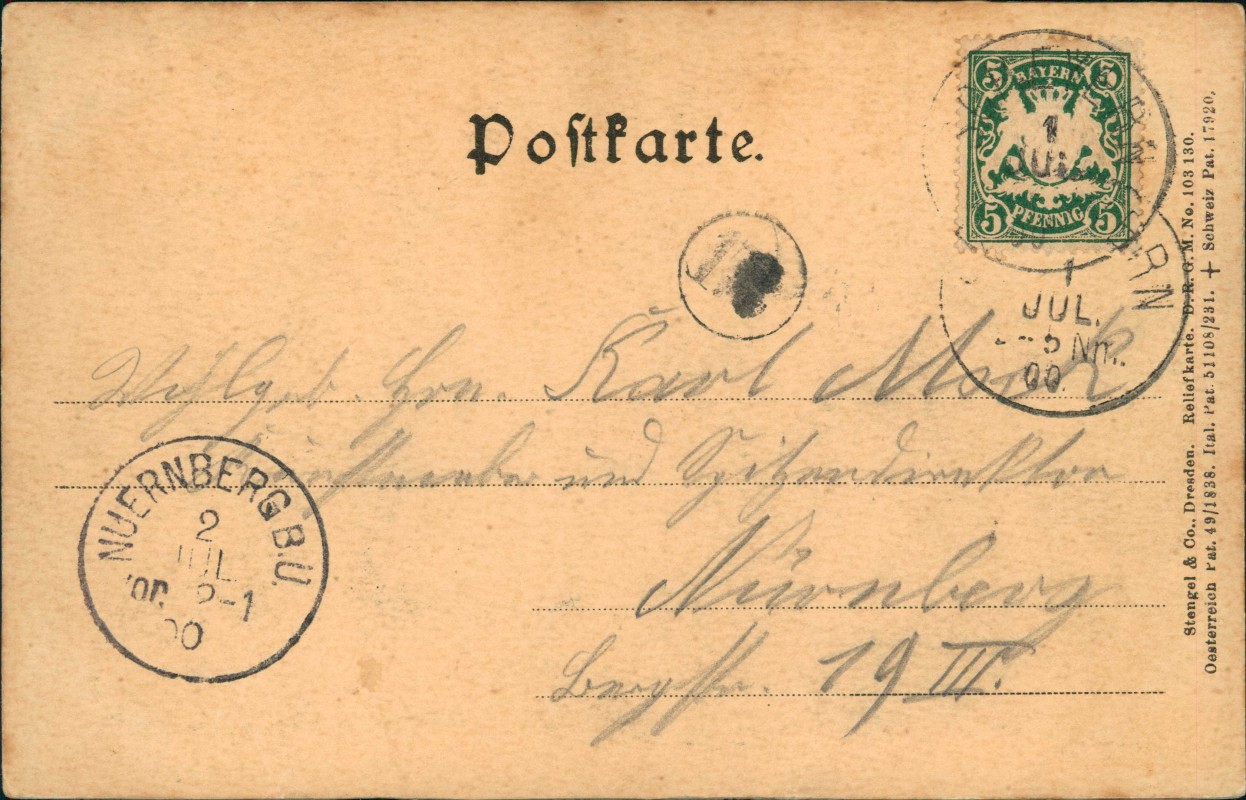 Postkarte.
5 5
BAYERN
5 PFENNIG 5
1
JUL
RN
1
JUL.
5 Nm.
00.
Wohlgeb. Hrn. Karl
und Spitzendirektor
Nürnberg
Bergstr. 19 III.
NUERNBERG B.U.
2
JUL
-1
00
Stengel & Co., Dresden. Reliefkarte. D. R. G. M. No. 103 130.
Oesterreich Pat. 49/1838. Ital. Pat. 51108/231. + Schweiz Pat. 17920,